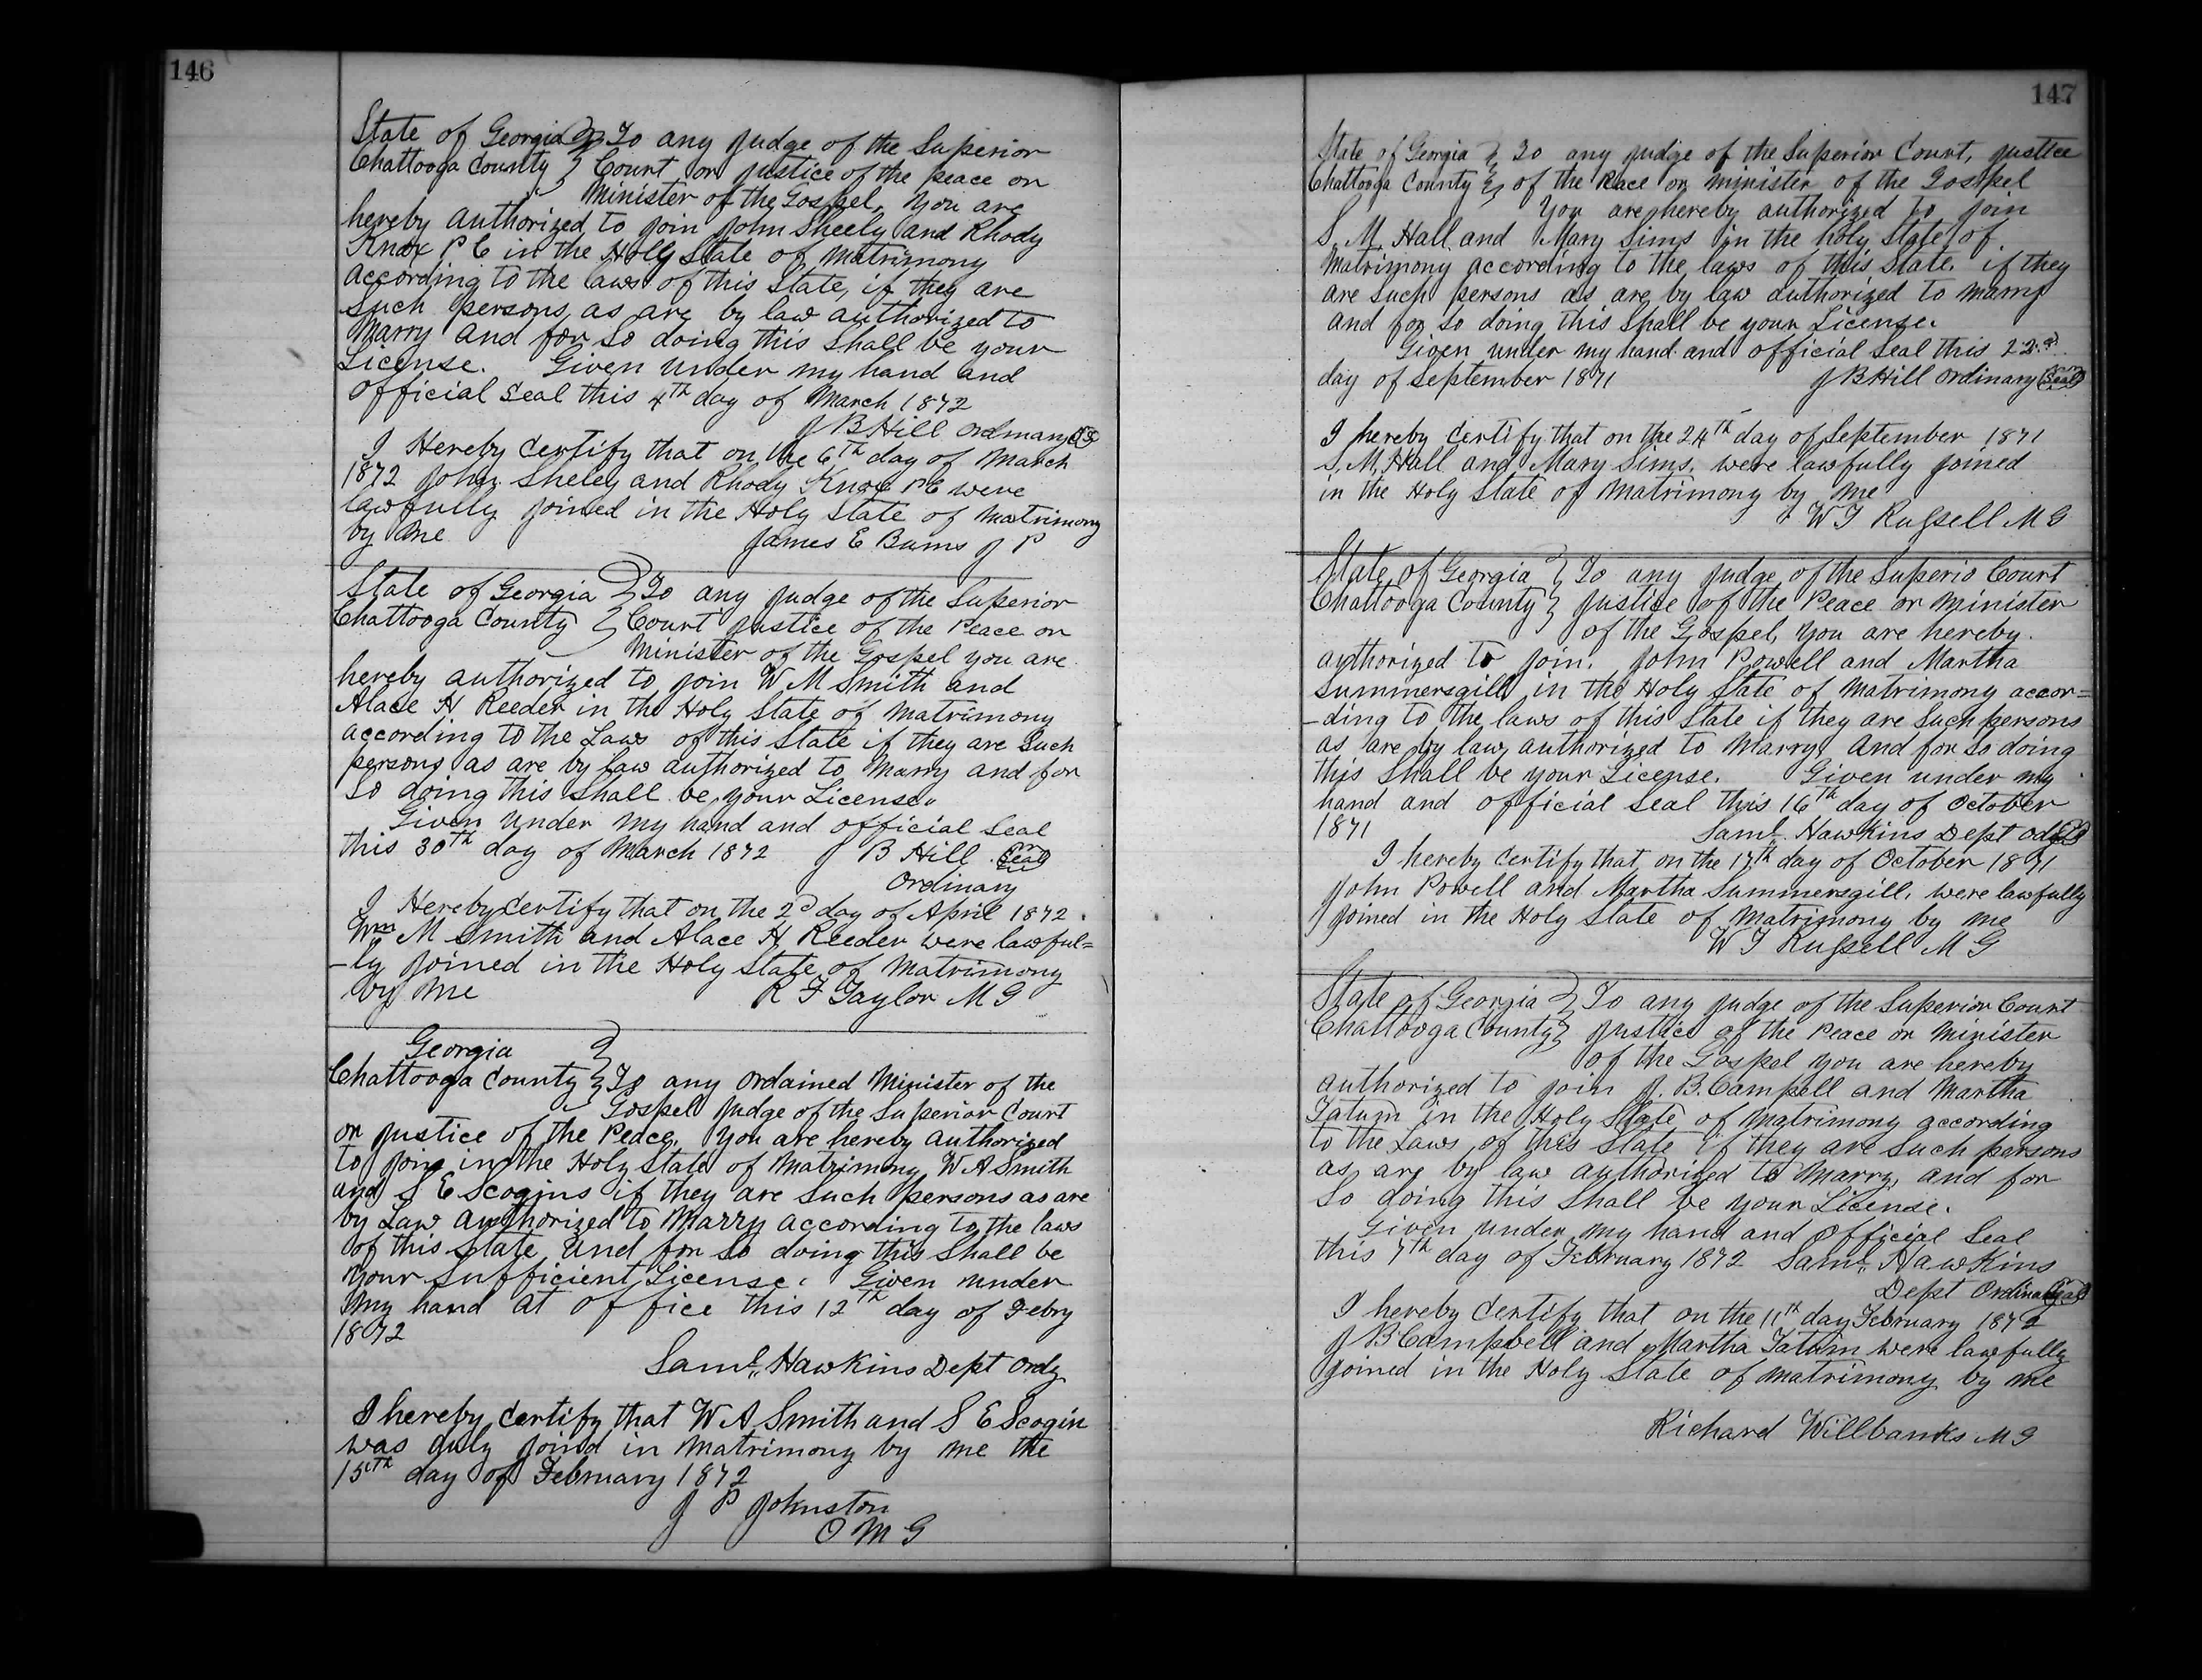 146
State of Georgia } To any Judge of the Superior
Chattooga County } Court or Justice of the peace or
Minister of the Gospel, You are
hereby authorized to join John Sheely and Rhody
Knox P C in the Holy State of Matrimony
according to the laws of this State, if they are
Such persons as are by law authorized to
Marry and for So doing this Shall be your
License. Given under my hand and
official Seal this 4th day of March 1872
J B Hill Ordinary
I Hereby Certify that on the 6th day of March
1872 John Sheley and Rhody Knox P C were
lawfully joined in the Holy State of Matrimony
by Me James E Burns J P
State of Georgia } To any Judge of the Superior
Chattooga County } Court Justice of the Peace or
Minister of the Gospel you are
hereby authorized to join W M Smith and
Alace H Reeder in the Holy State of Matrimony
according to the Laws of this State if they are Such
persons as are by law authorized to Marry and for
So doing this Shall be your License.
Given under my hand and official Seal
this 30th day of March 1872 J B Hill Seal
Ordinary
I Hereby Certify that on the 2d day of April 1872.
Wm M Smith and Alace H Reeder were lawful=
-ly joined in the Holy State of Matrimony
by Me R F Taylor M G
Georgia }
Chattooga County } To any Ordained Minister of the
Gospel Judge of the Superior Court
or Justice of the Peace. You are hereby authorized
to join in the Holy State of Matrimony W A Smith
and S E Scogins if they are Such persons as are
by Law authorized to Marry according to the laws
of this State and for So doing this Shall be
your Sufficient License. Given under
My hand at office this 12th day of Febry
1872
Saml. Hawkins Dept Ordy
I hereby Certify that W A Smith and S E Scogin
was duly joind in Matrimony by me the
15th day of February 1872
J P Johnston
O M G
147
State of Georgia } To any Judge of the Superior Court, Justice
Chattooga County } of the Peace or minister of the Gospel
You are hereby authorized to join
S. M. Hall and Mary Sims in the holy State of
Matrimony according to the laws of this State. if they
are Such persons as are by law authorized to marry
and for So doing this Shall be your License.
Given under my hand and official Seal this 22nd
day of September 1871 J B Hill Ordinary Seal
I hereby Certify that on the 24th day of September 1871
S. M. Hall and Mary Sims. were lawfully joined
in the Holy State of Matrimony by me
W T Russell M G
State of Georgia } To any Judge of the Superio Court
Chattooga County } Justice of the Peace or Minister
of the Gospel, You are hereby.
authorized to join. John Powell and Martha
Summersgill in the Holy State of Matrimony accor=
-ding to the laws of this State if they are Such persons
as are by law authorized to Marry, And for So doing
this Shall be your License. Given under my
hand and official Seal this 16th day of October
1871 Saml. Hawkins Dept Od
I hereby Certify that on the 17th day of October 1871
John Powell and Martha Summersgill, were lawfully
joined in the Holy State of Matrimony by me
W T Russell M G
State of Georgia } To any Judge of the Superior Court
Chattooga County } Justice of the Peace or Minister
of the Gospel you are hereby
authorized to join J. B. Campell and Martha
Tatum in the Holy State of Matrimony according
to the Laws of this State if they are Such persons
as are by law authorized to Marry, and for
So doing this Shall be your License.
Given under my hand and Official Seal
this 7th day of February 1872 Saml. Hawkins
Dept Ordinary Seal
I hereby Certify that on the 11th day February 1872
J B Campbell and Martha Tatum were lawfully
joined in the Holy State of Matrimony by me
Richard Willbanks M G